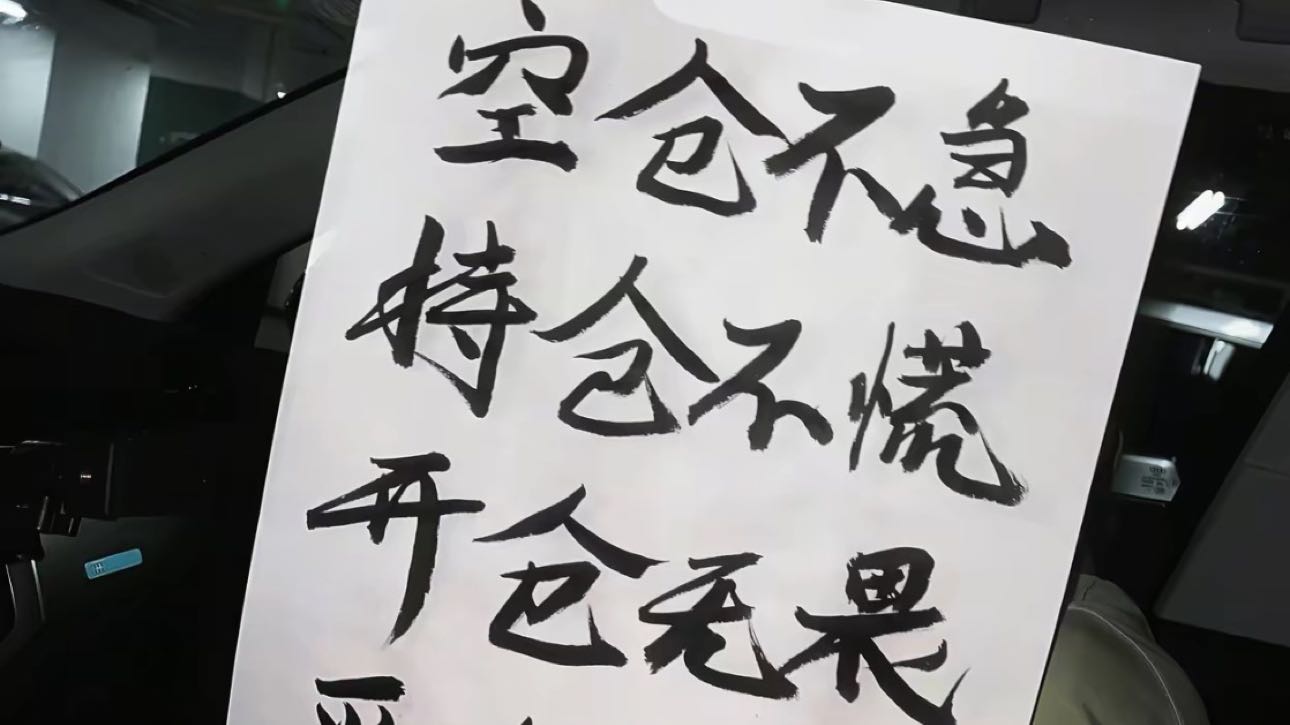 空仓不急
持仓不慌
开仓无畏